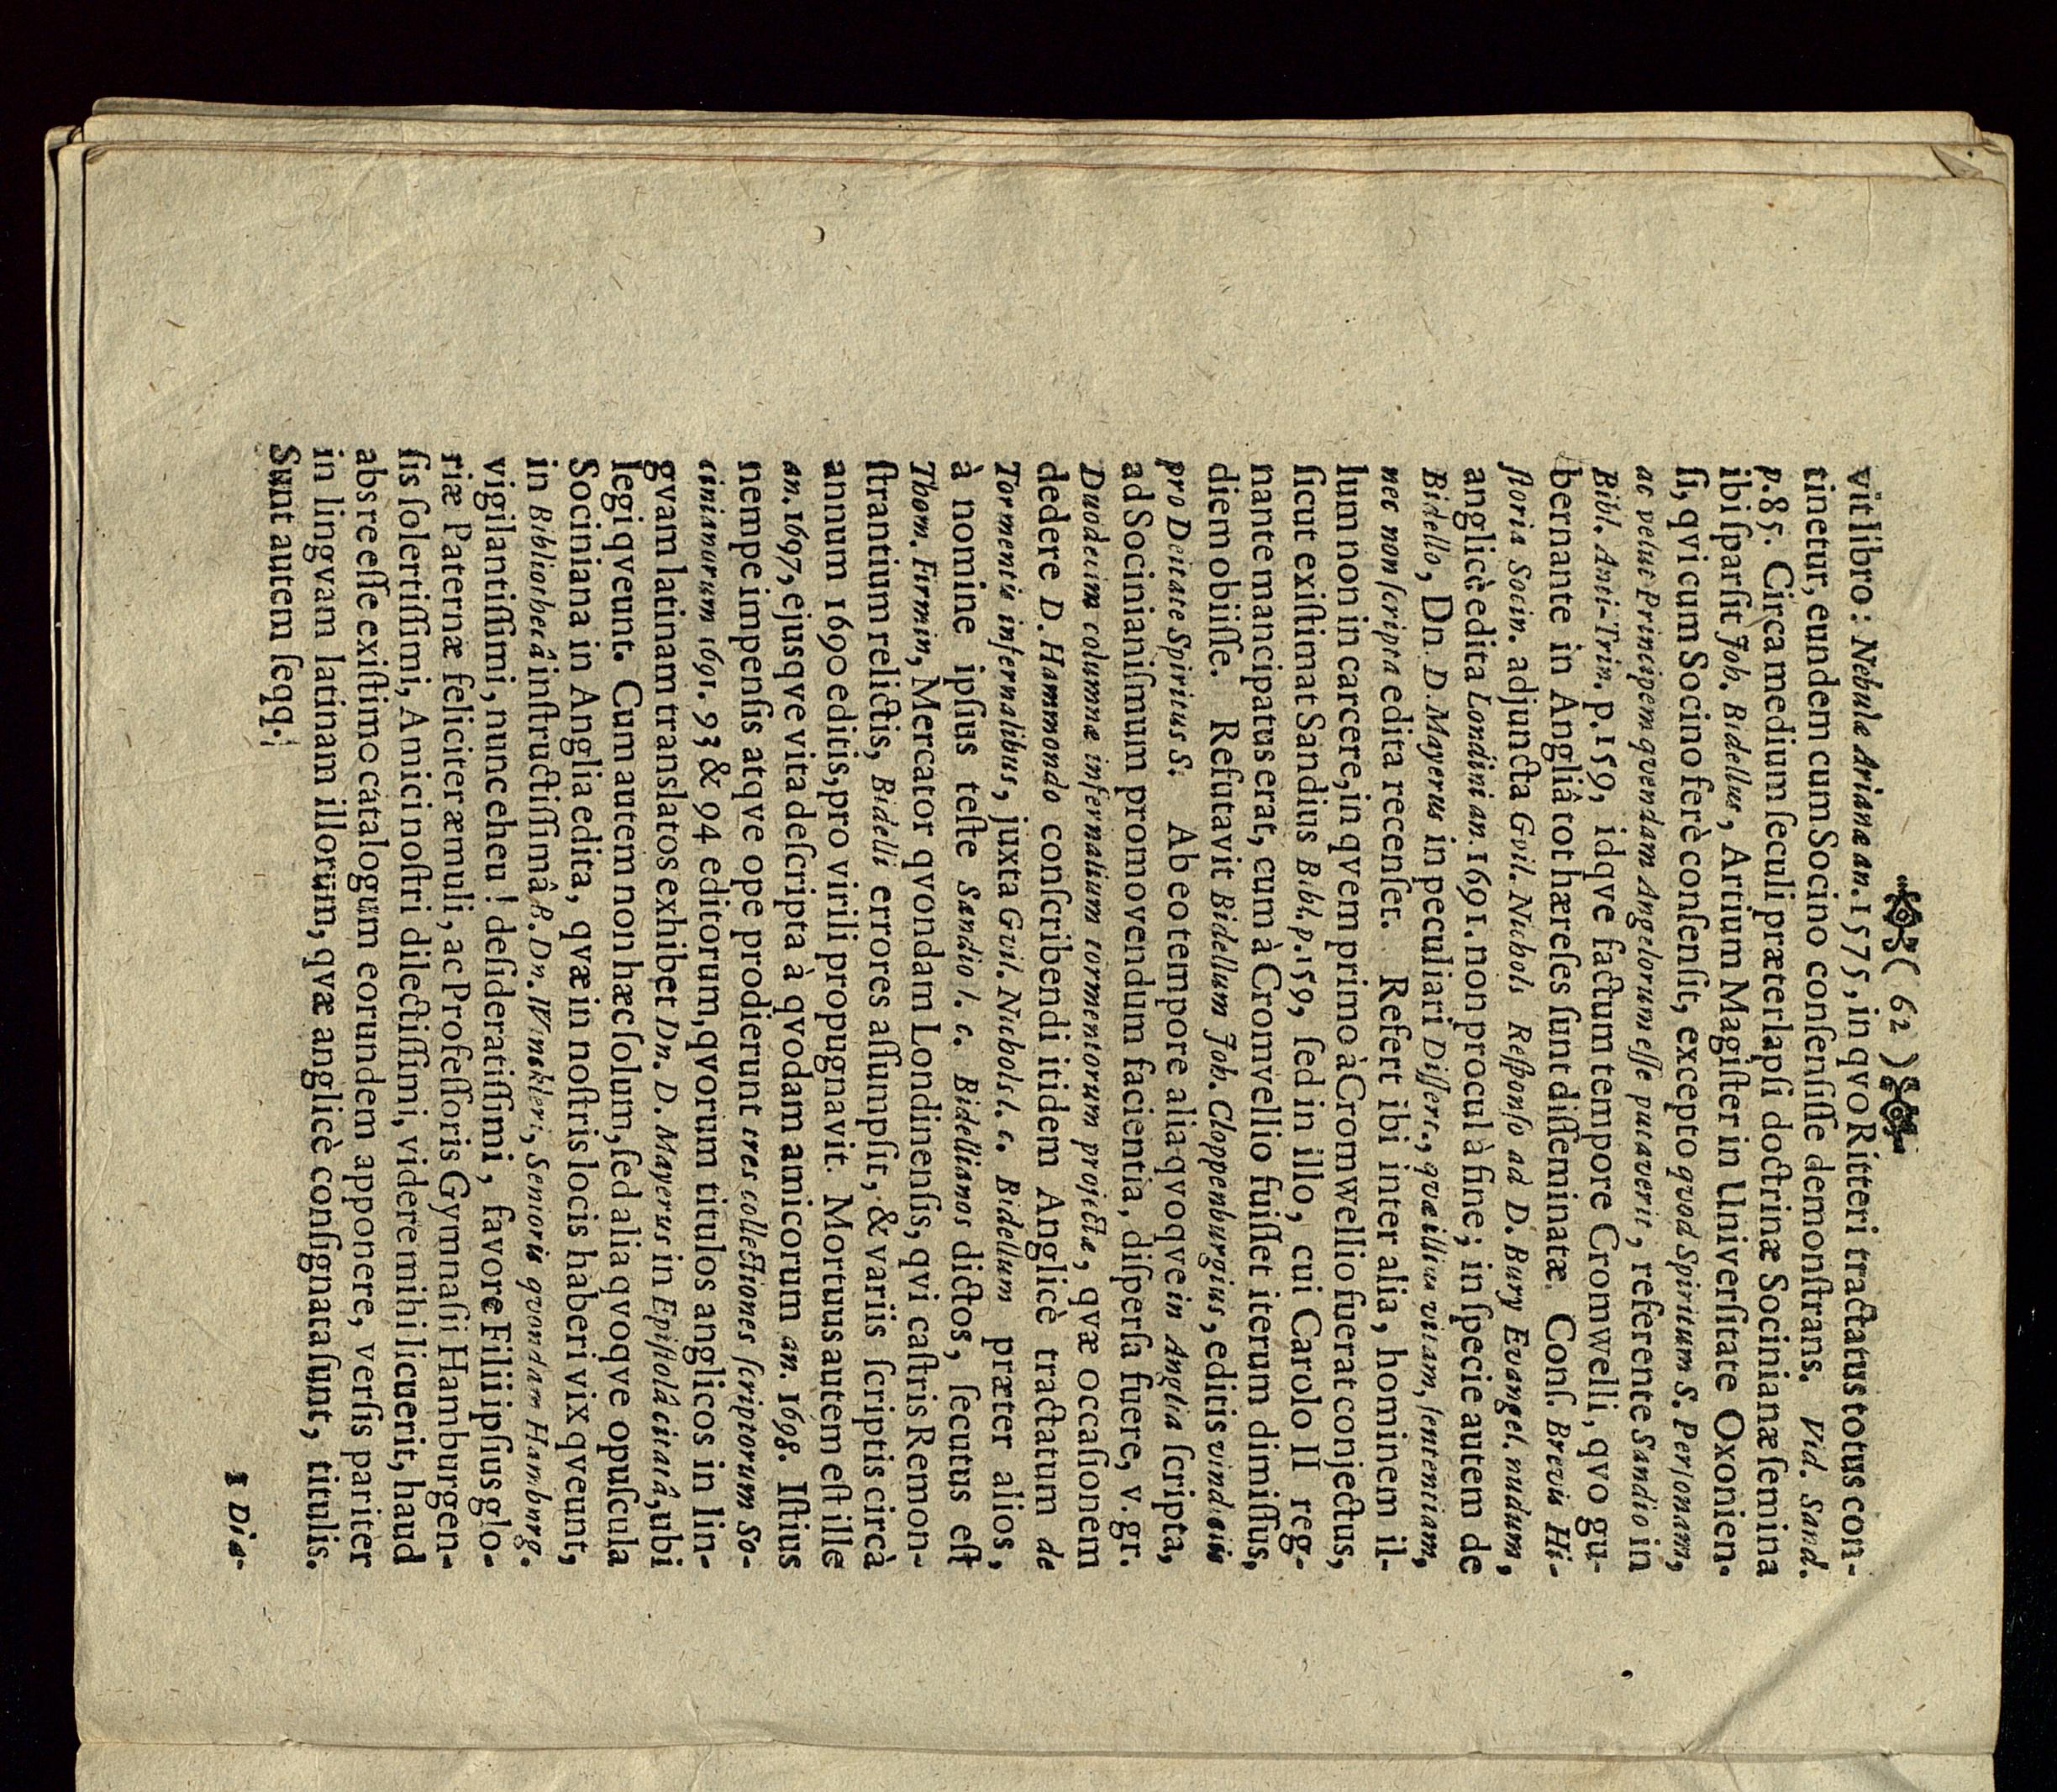 ( 62 )
vit libro: Nebulæ Arianæ an. 1575, in qvo Ritteri tractatus totus con-
tinetur, eundem cum Socino conſenſiſſe demonſtrans. Vid. Sand.
p. 85. Circa medium ſeculi præterlapſi doctrinæ Socinianæ ſemina
ibi ſparſit Joh. Bidellus, Artium Magiſter in Univerſitate Oxonien-
ſi, qvi cum Socino ferè conſenſit, excepto qvod Spiritum S. Perſonam,
ac velut Principem qvendam Angelorum eſſe putaverit, referente Sandio in
Bibl. Anti-Trin. p. 159, idqve factum tempore Cromwelli, qvo gu-
bernante in Angliâ tot hæreſes ſunt diſſeminatæ. Conſ. Brevis Hi-
ſtoria Socin. adjuncta Gvil. Nichols Reſponſo ad D. Bury Evangel. nudum,
anglicè edita Londini an. 1691. non procul à fine; in ſpecie autem de
Bidello, Dn. D. Mayerus in peculiari Diſſert., qvæ illius vitam, ſententiam,
nec non ſcripta edita recenſet. Refert ibi inter alia, hominem il-
lum non in carcere, in qvem primo à Cromwellio fuerat conjectus,
ſicut exiſtimat Sandius Bibl. p. 159, ſed in illo, cui Carolo II reg-
nante mancipatus erat, cum à Cromvellio fuiſſet iterum dimiſſus,
diem obiiſſe. Refutavit Bidellum Joh. Cloppenburgius, editis vindciis
pro Deitate Spiritus S. Ab eo tempore alia qvoqve in Anglia ſcripta,
ad Socinianiſmum promovendum facientia, diſperſa fuere, v. gr.
Duodecim columnæ infernalium tormentorum projectæ, qvæ occaſionem
dedere D. Hammondo conſcribendi itidem Anglicè tractatum de
Tormentis infernalibus, juxta Gvil. Nichols l. c. Bidellum præter alios,
à nomine ipſius teſte Sandio l. c. Bidellianos dictos, ſecutus eſt
Thom. Firmin, Mercator qvondam Londinenſis, qvi caſtris Remon-
ſtrantium relictis, Bidelli errores aſſumpſit, & variis ſcriptis circà
annum 1690 editis, pro virili propugnavit. Mortuus autem eſt ille
an. 1697, ejusqve vita deſcripta à qvodam amicorum an. 1698. Iſtius
nempe impenſis atqve ope prodierunt tres collectiones ſcriptorum So-
cinianorum 1691. 93 & 94 editorum, qvorum titulos anglicos in lin-
gvam latinam translatos exhibet Dn. D. Mayerus in Epiſtolâ citatâ, ubi
legi qveunt. Cum autem non hæc ſolum, ſed alia qvoqve opuſcula
Sociniana in Anglia edita, qvæ in noſtris locis haberi vix qveunt,
in Bibliothecâ inſtructiſſimâ R. Dn. Winckleri, Senioris qvondam Hamburg.
vigilantiſſimi, nunc eheu! deſideratiſſimi, favore Filii ipſius glo-
riæ Paternæ feliciter æmuli, ac Profeſſoris Gymnaſii Hamburgen-
ſis ſolertiſſimi, Amici noſtri dilectiſſimi, videre mihi licuerit, haud
abs re eſſe exiſtimo catalogum eorundem apponere, verſis pariter
in lingvam latinam illorum, qvæ anglicè conſignata ſunt, titulis.
Sunt autem ſeqq.
1 Dia-